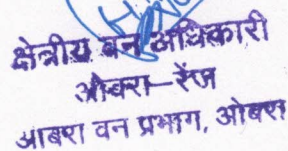 क्षेत्रीय वन अधिकारी
ओबरा-रेंज
ओबरा वन प्रभाग, ओबरा